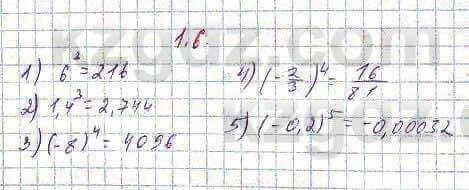 1.6.
1) 6³ = 216
2) 1,4³ = 2,744
3) (-8)⁴ = 4096
4) (-2/3)⁴ = 16/81
5) (-0,2)⁵ = -0,00032